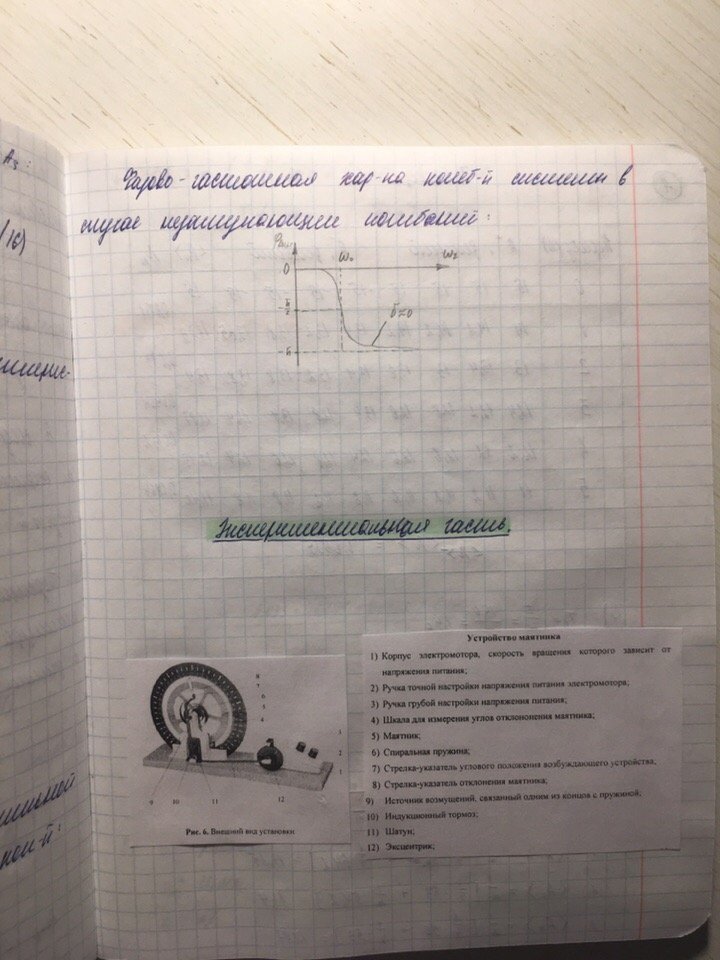 Аз:
/16)
Фазово-частотная хар-ка колеб-й системы в
случае незатухающих колебаний:
0
ω₀
ω₂
π/2
δ≈0
π
Экспериментальная часть.
Устройство маятника
1) Корпус электромотора, скорость вращения которого зависит от
напряжения питания;
2) Ручка точной настройки напряжения питания электромотора;
3) Ручка грубой настройки напряжения питания;
4) Шкала для измерения углов отклононения маятника;
5) Маятник;
6) Спиральная пружина;
7) Стрелка-указатель углового положения возбуждающего устройства;
8) Стрелка-указатель отклонения маятника;
9) Источник возмущений, связанный одним из концов с пружиной;
10) Индукционный тормоз;
11) Шатун;
12) Эксцентрик;
8
7
6
5
4
3
2
1
9 10 11 12
Рис. 6. Внешний вид установки